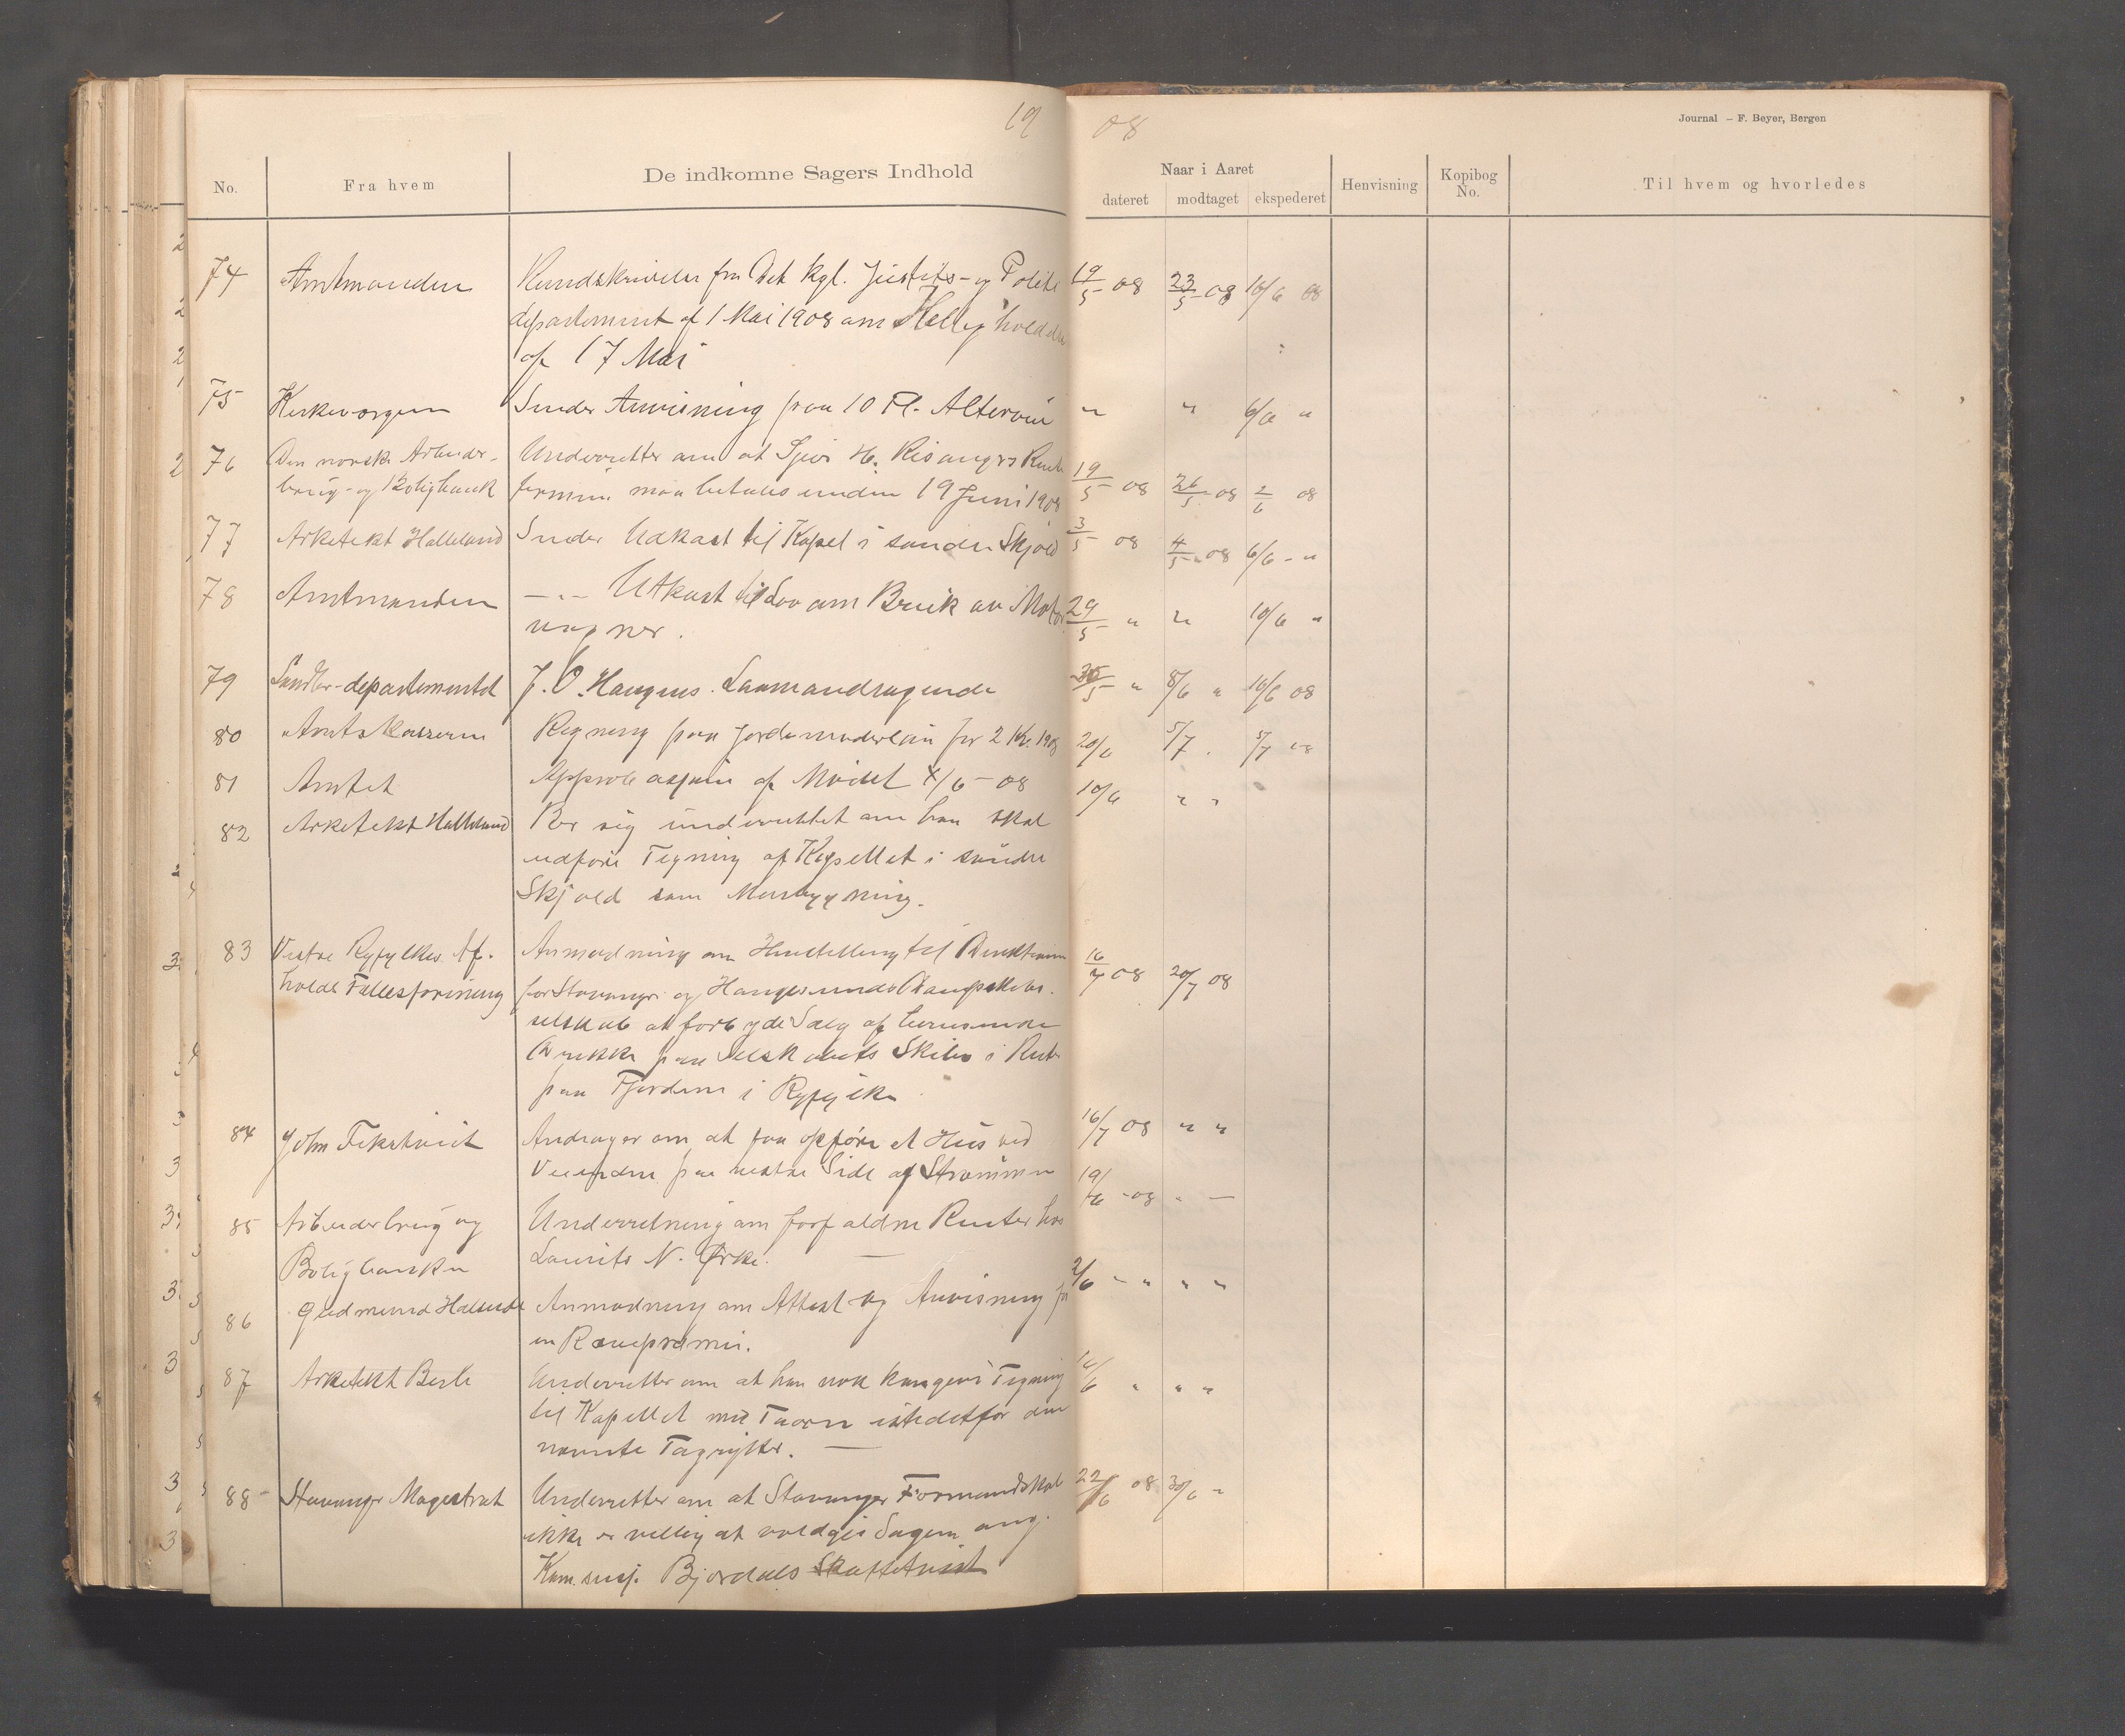 19 08
Journal – F. Beyer, Bergen
No.
Fra hvem
De indkomne Sagers Indhold
Naar i Aaret
dateret
modtaget
ekspederet
Henvisning
Kopibog No.
Til hvem og hvorledes
74 Amtmanden Rundskrivelse fra Det kgl. Justits- og Politi 19/5 08 23/5 08 10/6 08
departement af 1 Mai 1908 om Helligholdelse
af 17 Mai
75 Kirkevergen Sender Anvisning paa 10 Fl. Altervin " " 6/6 "
76 Den norske Arbeider- Underretter om at Sjur H. Risangers Rente
brug- og Boligbank termin maa betales inden 19 Juni 1908 19/5 08 26/5 08 2/6 08
77 Arkitekt Halleland Sender Udkast til Kapel i søndre Skjold 3/5 08 4/5 08 6/6 - "
78 Amtmanden — " — Utkast til Lov om Bruk av Motor 29/5 " " 10/6 "
vogner.
79 Landbr-departementet J. O. Haugens Laanandragende 30/5 " 8/6 " 10/6 08
80 Amtskasseren Regning paa Jordemoderløn for 2 Kv. 1908 20/6 5/7 5/7 08
81 Amtet Approbasjon af Mødet 4/6 - 08 10/6 " "
82 Arkitekt Halleland Ber sig underrettet om han skal
udføre Tegning af Kapellet i søndre
Skjold som Murbygning.
83 Vestre Ryfylkes Af- Anmodning om Henstilling til Direktionen
holds Fællesforening for Stavanger og Haugesunds Dampskibs- 16/7 08 20/7 08
selskab at forbyde Salg af berusende
Drikke paa Selskabets Skibe i Rute
paa Fjordene i Ryfylke
84 John Tekstveit Andrager om at faa opføre et Hus ved 16/7 08 " "
Veienden paa vestre Side af Strømmen
85 Arbeiderbrug og Underretning om forfaldne Renter hos 19/6 - 08 " —
Boligbanken Laurits N. Ørke. —
86 Gudmund Anmodning om Attest og Anvisning for 2/6 - " " "
en Rovepræmie.
87 Arkitekt Underretter om at han nok kan give Tegning 14/6 " " "
til Kapellet med Taarn istedetfor den
nævnte Tagrytter. —
88 Stavanger Magistrat Underretter om at Stavanger Formandskab 22/6 08 30/6 "
ikke er villig at voldgie Sagen ang.
Bjordals Skattetvist